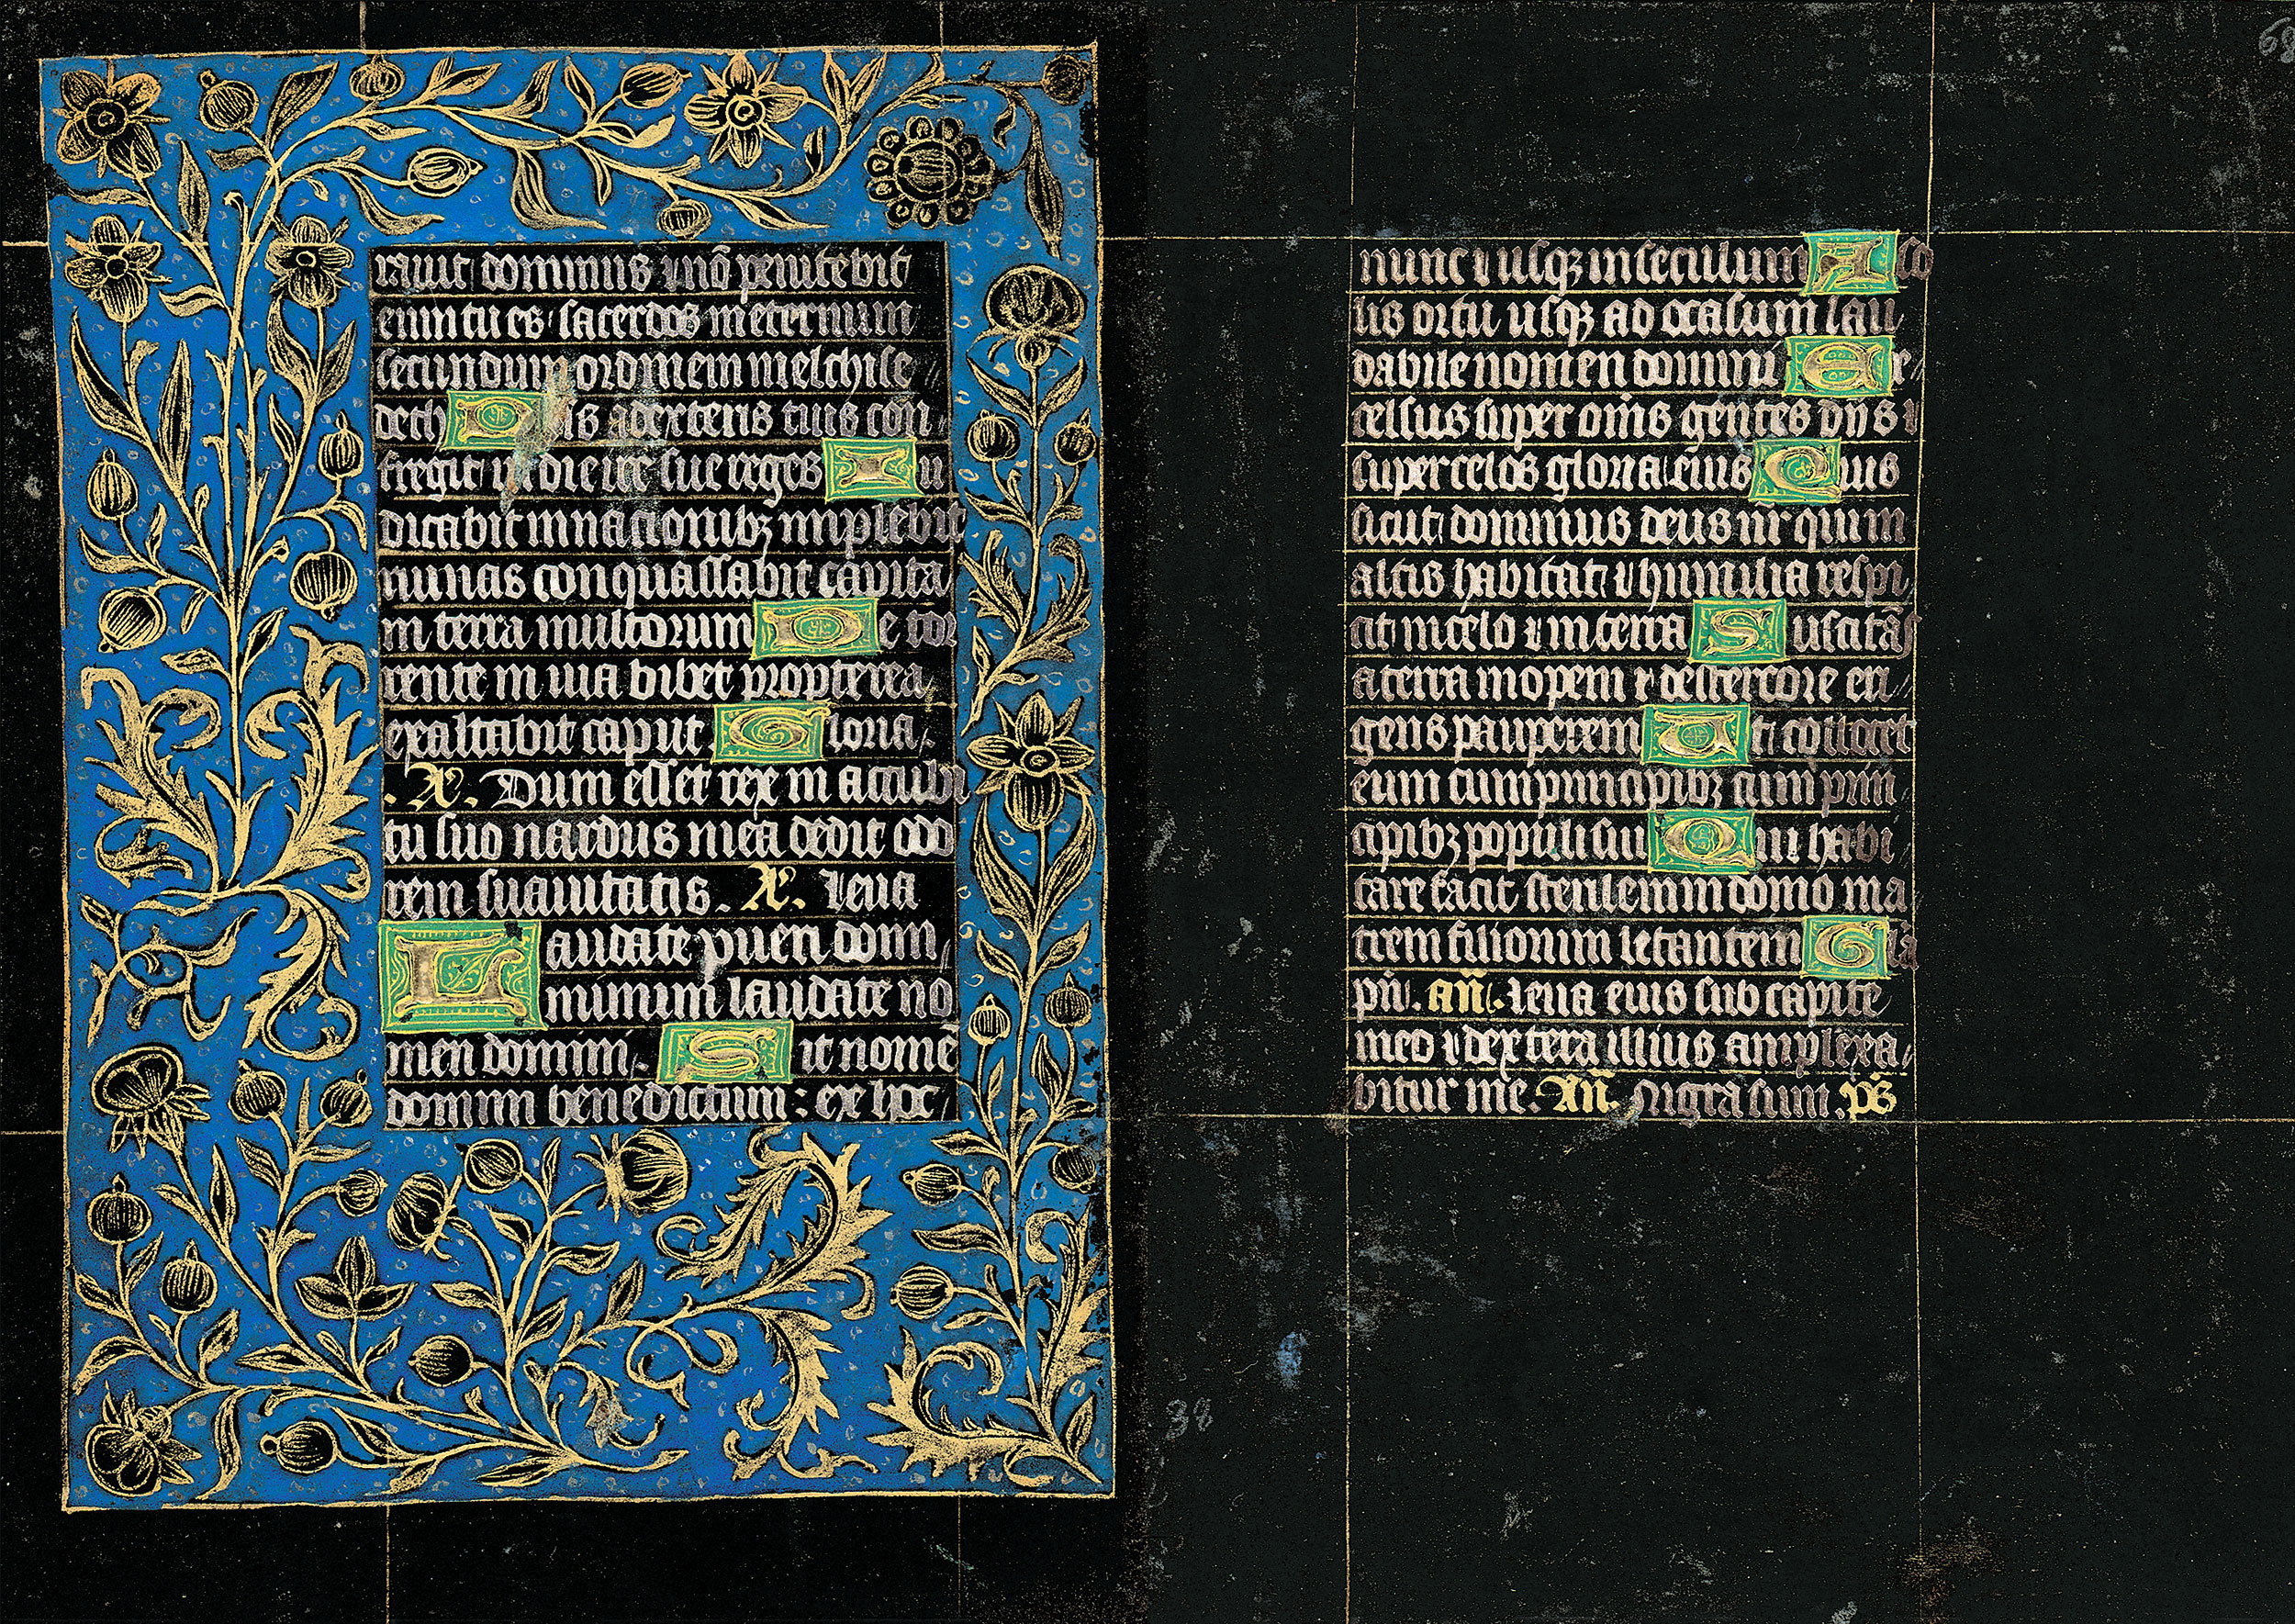 rauit dominus ⁊ nō penitebit
eum tu es sacerdos in eternum
secundum ordinem melchise
dech Dn̄s a dexteris tuis con
fregit in die ire sue reges Iu
dicabit in nacionibꝫ implebit
ruinas conquassabit capita
in terra multorum De tor
rente in uia bibet propterea
exaltabit caput Gloria.
.A᷒. Dum esset rex in accubi
tu suo nardus mea dedit odo
rem suauitatis. A᷒. Leua
Laudate pueri domi
num laudate no
men domini. Sit nomē
domini benedictum : ex hoc
60
nunc ⁊ usqꝫ in seculum A so
lis ortu usqꝫ ad occasum lau
dabile nomen domini Ex
celsus super om̄s gentes dn̄s ⁊
super celos gloria eius Quis
sicut dominus deus nr̄ qui in
altis habitat ⁊ humilia respi
cit in celo ⁊ in terra Suscitās
a terra inopem ⁊ de stercore eri
gens pauperem Ut collocet
eum cum principibꝫ cum prin
cipibꝫ populi sui Qui habi
tare facit sterilem in domo ma
trem filiorum letantem Glā
pr̄i. an̄. Leua eius sub capite
meo ⁊ dextera illius amplexa
bitur me. An̄. Nigra sum. ps̄
38